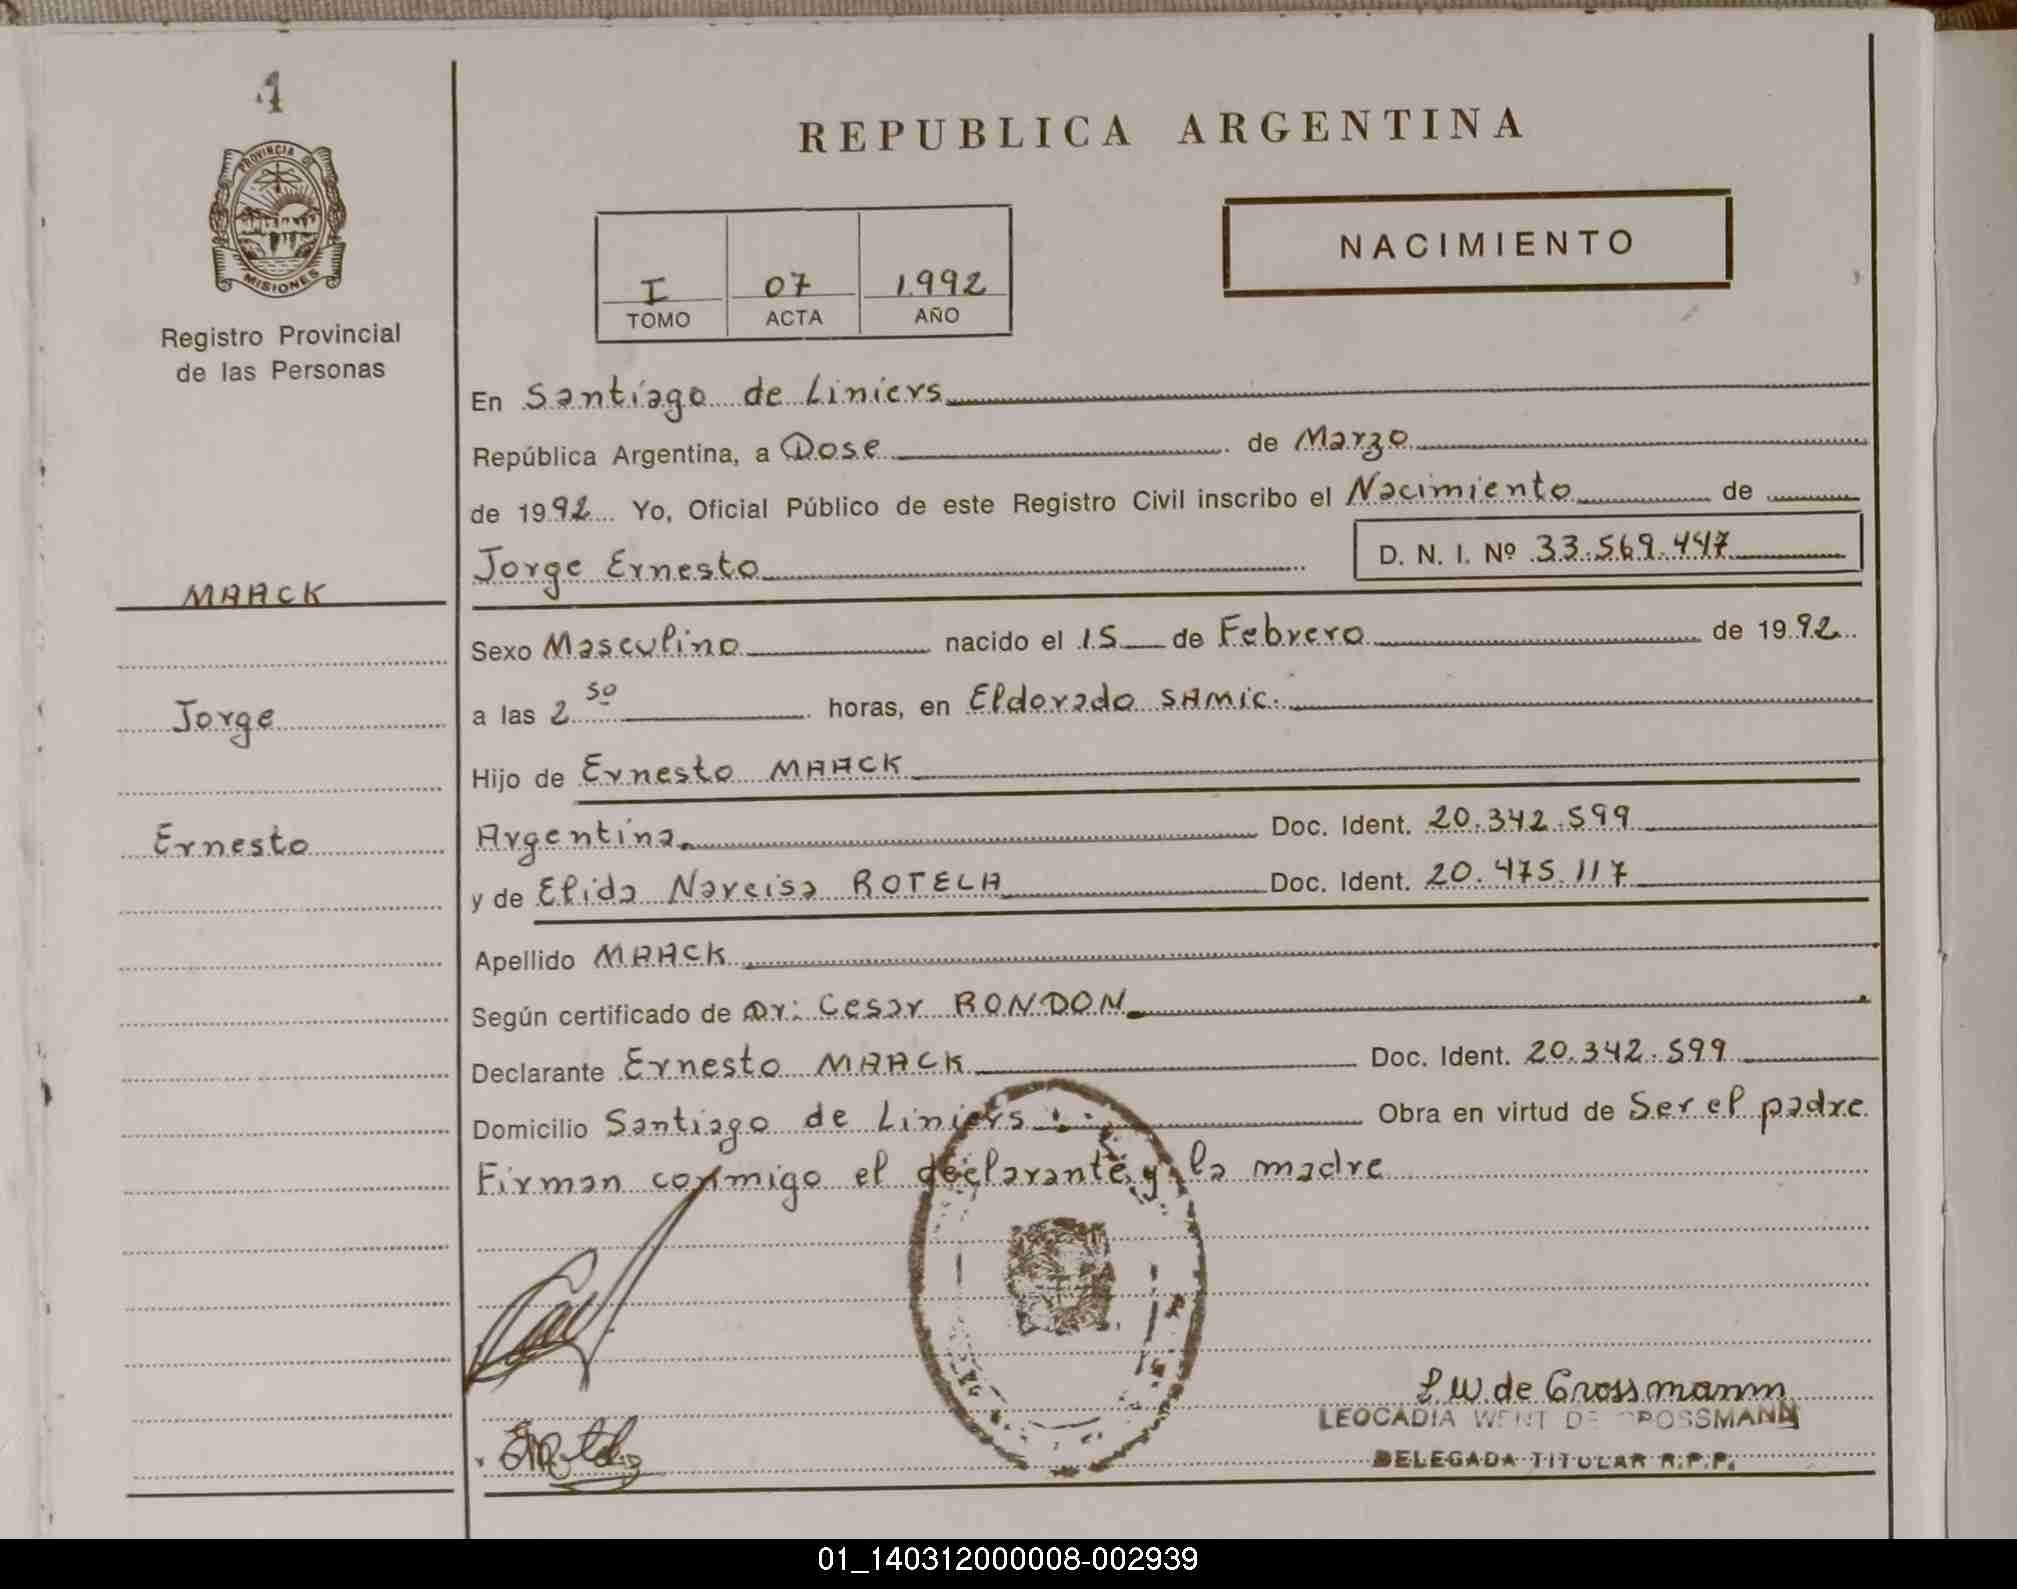 4
PROVINCIA DE
MISIONES
Registro Provincial
de las Personas
MAACK
Jorge
Ernesto
REPUBLICA ARGENTINA
NACIMIENTO
I 07 1992
TOMO ACTA AÑO
En Santiago de Liniers
República Argentina, a Dose de Marzo
de 1992 Yo, Oficial Público de este Registro Civil inscribo el Nacimiento de
Jorge Ernesto D. N. I. Nº 33.569.447
Sexo Masculino nacido el 15 de Febrero de 1992
a las 2 50 horas, en Eldorado SAMIC.
Hijo de Ernesto MAACK
Argentina Doc. Ident. 20.342.599
y de Elida Narcisa ROTELA Doc. Ident. 20.475.117
Apellido MAACK
Según certificado de Dr: Cesar RONDON
Declarante Ernesto MAACK Doc. Ident. 20.342.599
Domicilio Santiago de Liniers Obra en virtud de Ser el padre
Firman conmigo el declarante y la madre
L.W. de Grossmann
LEOCADIA WENT DE GROSSMANN
DELEGADA TITULAR R.P.P.
01_140312000008-002939